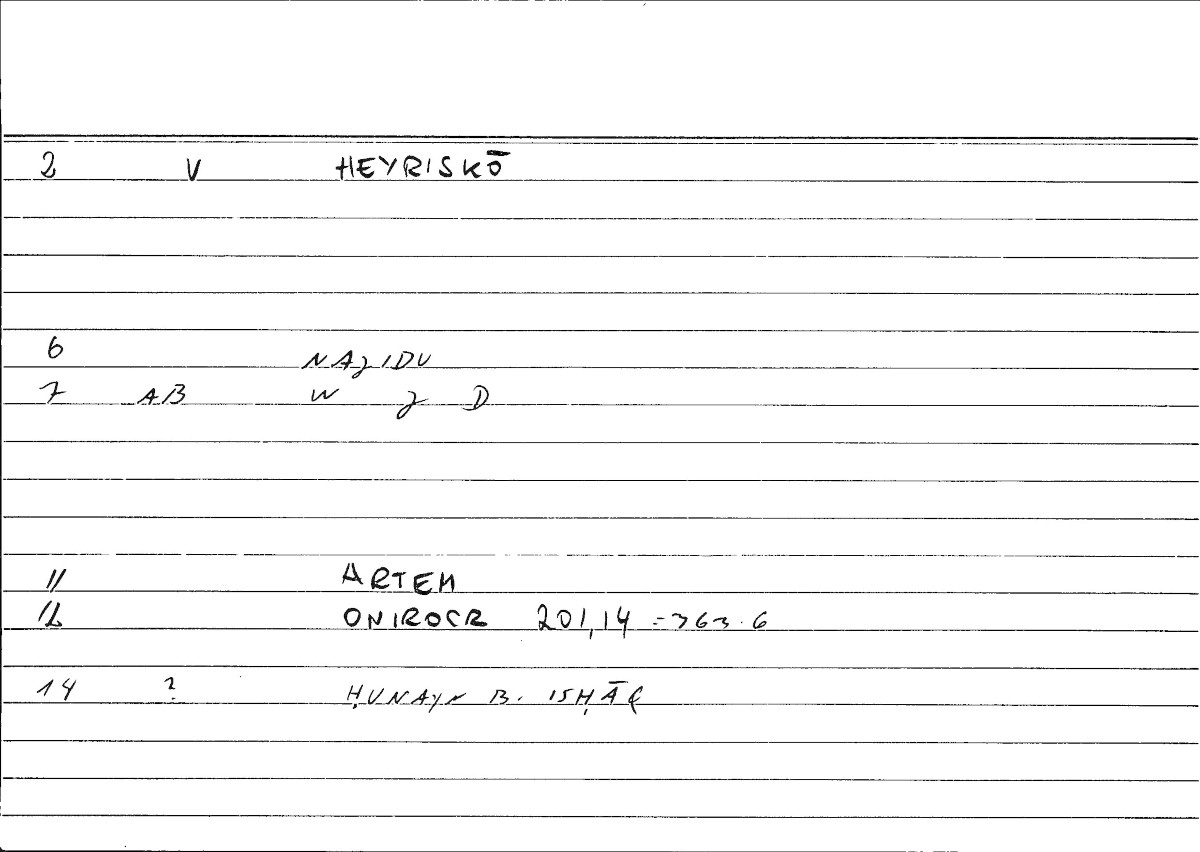 2 V HEYRISKŌ
6 NAJIDU
7 AB W J D
11 ARTEM
12 ONIROCR 201,14 = 363.6
14 ? ḤUNAYN B. ISḤĀQ